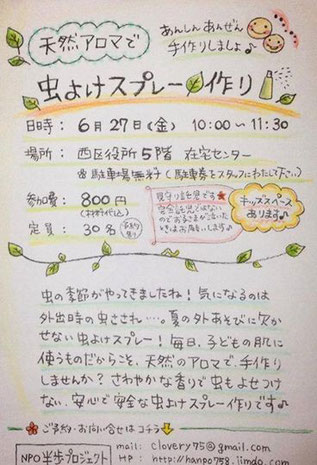 あんしんあんぜん
手作りしましょ♪
天然アロマで
虫よけスプレー作り
日時： 6月27日(金) 10:00～11:30
場所： 西区役所5階 在宅センター
※駐車場無料(駐車券をスタッフにわたして下さい)
参加費： 800円
(材料代込)
見守り託児です
完全託児ではない
のでお子さまが泣いた
ときはお願いします
キッズスペース
あります♪
定員： 30名
虫の季節がやってきましたね！気になるのは
外出時の虫さされ…。夏の外あそびに欠か
せない虫よけスプレー！毎日、子どもの肌に
使うものだからこそ、天然のアロマで、手作り
しませんか？さわやかな香りで虫もよせつけ
ない、安心で安全な虫よけスプレー作りです♪
ご予約・お問い合せはコチラ
NPO半歩プロジェクト
mail: clovery75@gmail.com
HP: http://hanpo758.jimdo.com